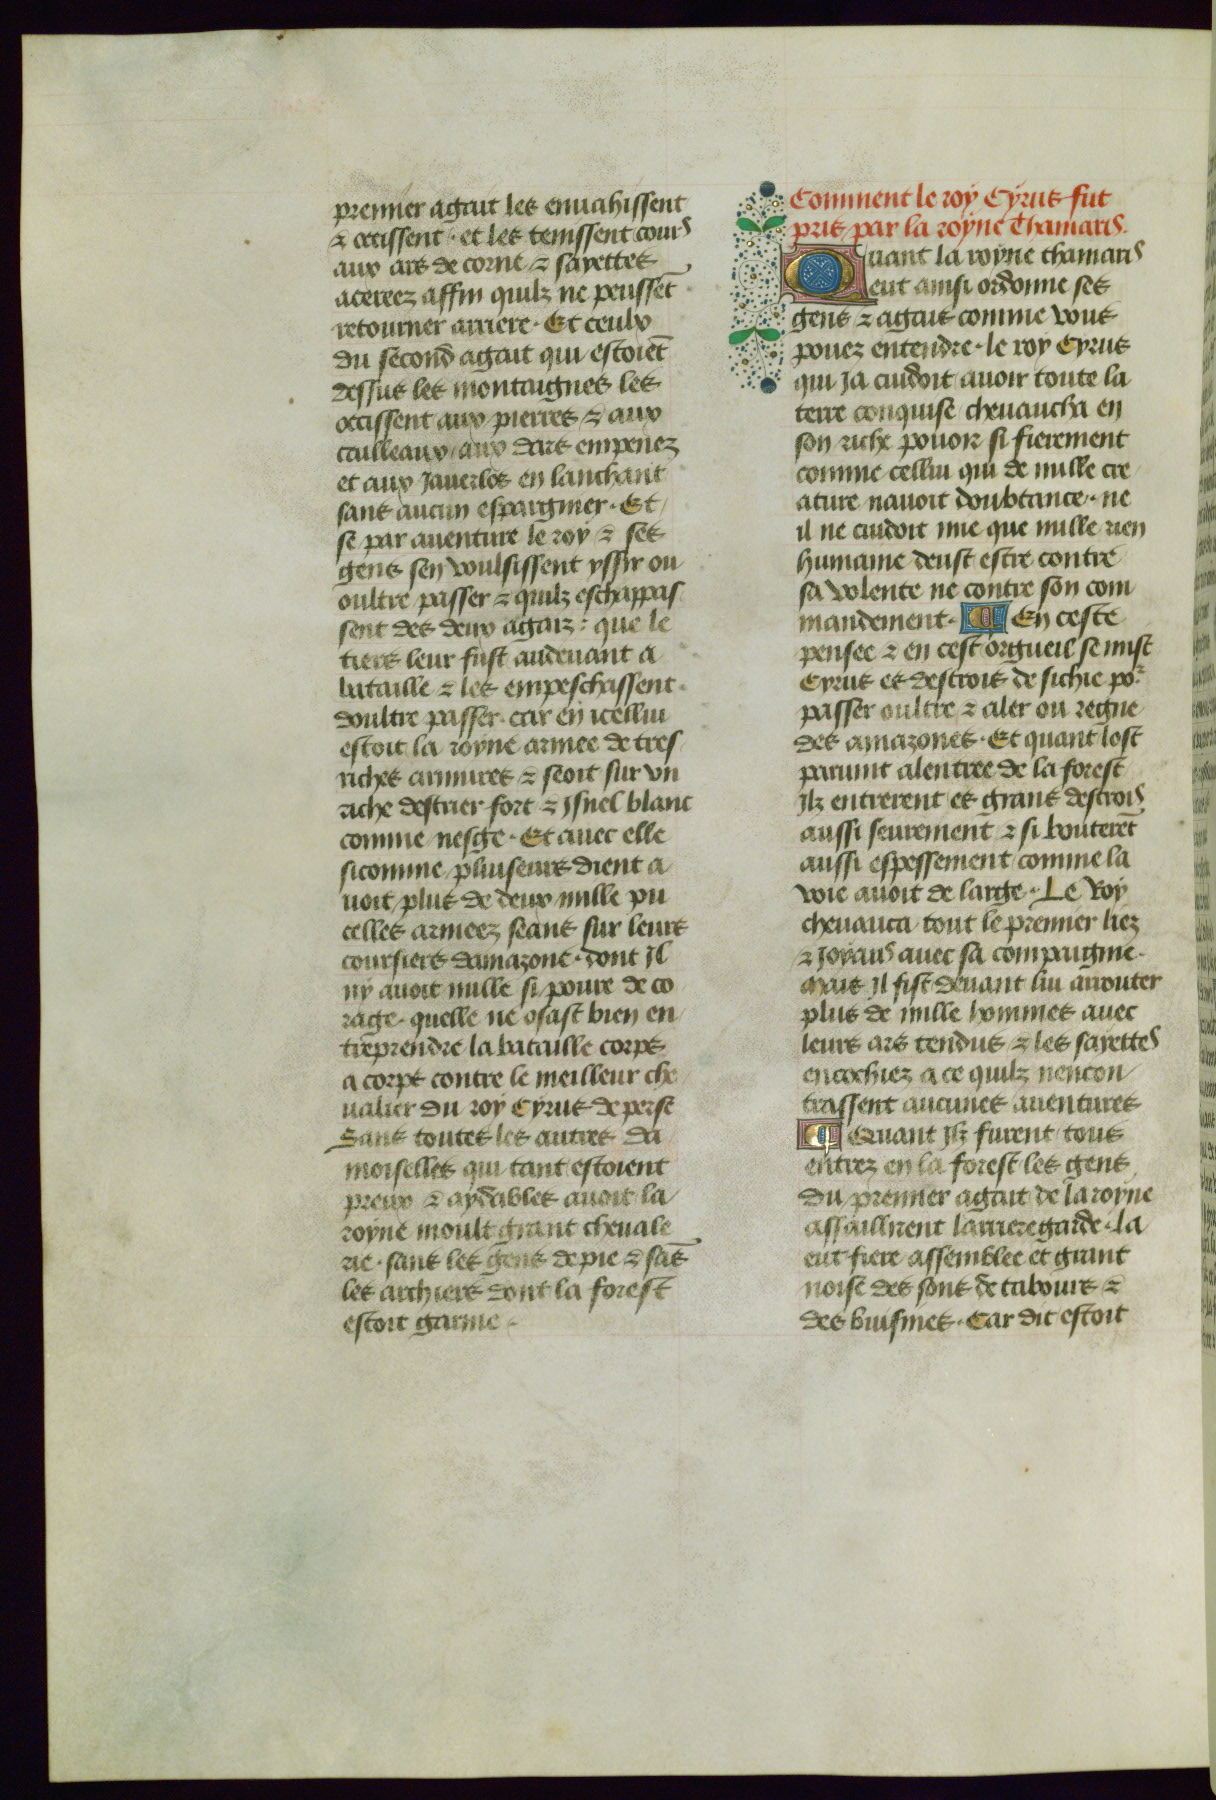 premier agait les enuahissent
& occissent · et les tenissent cours
aux ars de corne & sayettes
acereez affin quilz ne peussēt
retourner arriere · Et ceulx
du second agait qui estoiēt
dessus les montaignes les
occissent aux pierres & aux
cailleaux aux dars empenez
et aux Jauerlos en lanchant
sans aucun espargnier · Et
se par auenture le roy & ses
gens sen voulsissent yssir ou
oultre passer & quilz eschappas
sent des deux agaiz : que le
tiers leur fust audeuant a
bataille & les empeschassent ·
doultre passer · car en icellui
estoit la royne armee de tres
riches armures & seoit sur vn
riche destrier fort & Isnel blanc
comme nesge · Et auec elle
sicomme pluiseurs dient a
uoit plus de deux mille pu
celles armeez seans sur leurs
coursiers damazone · dont Il
ny auoit nulle si poure de co
rage · quelle ne osast bien en
treprendre la bataille corps
a corps contre le meilleur che
ualier du roy Cyrus de perse
Sans toutes les autres da
moiselles qui tant estoient
preux & aydables auoit la
royne moult grant cheuale
rie · sans les gens de pie & sās
les archiers dont la forest
estoit garnie ·
Comment le roy Cyrus fut
pris par la royne Thamaris ·
Quant la royne thamaris
eut ainsi ordonne ses
gens & agais comme vous
pouez entendre · le roy Cyrus
qui Ja cuidoit auoir toute la
terre conquise cheuaucha en
son riche pouoir si fierement
comme cellui qui de nulle cre
ature nauoit doubtance · ne
il ne cuidoit mie que nulle rien
humaine deust estre contre
sa volente ne contre son com
mandement · En ceste
pensee & en cest orgueil se mist
Cyrus es destrois de sichie por
passer oultre & aler ou regne
des amazones · Et quant lost
paruint alentree de la forest
Ilz entrerent es grans destrois
aussi seurement & si bouterēt
aussi espessement comme la
voie auoit de large · Le Roy
cheuauca tout le premier liez
& Joyaus auec sa compaignie ·
Mais Il fist deuant lui arrouter
plus de mille hommes auec
leurs ars tendus & les sayettes
encochiez a ce quilz nencon
trassent aucunes auentures
Quant Ilz furent tous
entrez en la forest les gens
du premier agait de la royne
assaillirent larrieregarde · la
eut fiere assemblee et grant
noise des sons de tabours &
des buisines · Car dit estoit